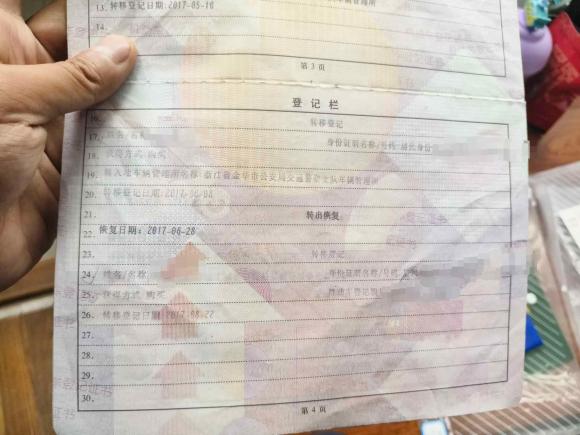 13. 转移登记日期:2017-05-16
14.
第 3 页
登 记 栏
16. 转移登记
17. 姓名/名称 身份证明名称/号码 居民身份
18. 获得方式 购买
19. 转入地车辆管理所名称:浙江省金华市公安局交通警察支队车辆管理所
20. 转移登记日期:2017-06-08
21. 转出恢复
22. 恢复日期: 2017-06-28
23. 转移登记
24. 姓名/名称 身份证明名称/号码
25. 获得方式 购买
26. 转移登记日期:2017-08-22
27.
28.
29.
30.
第 4 页